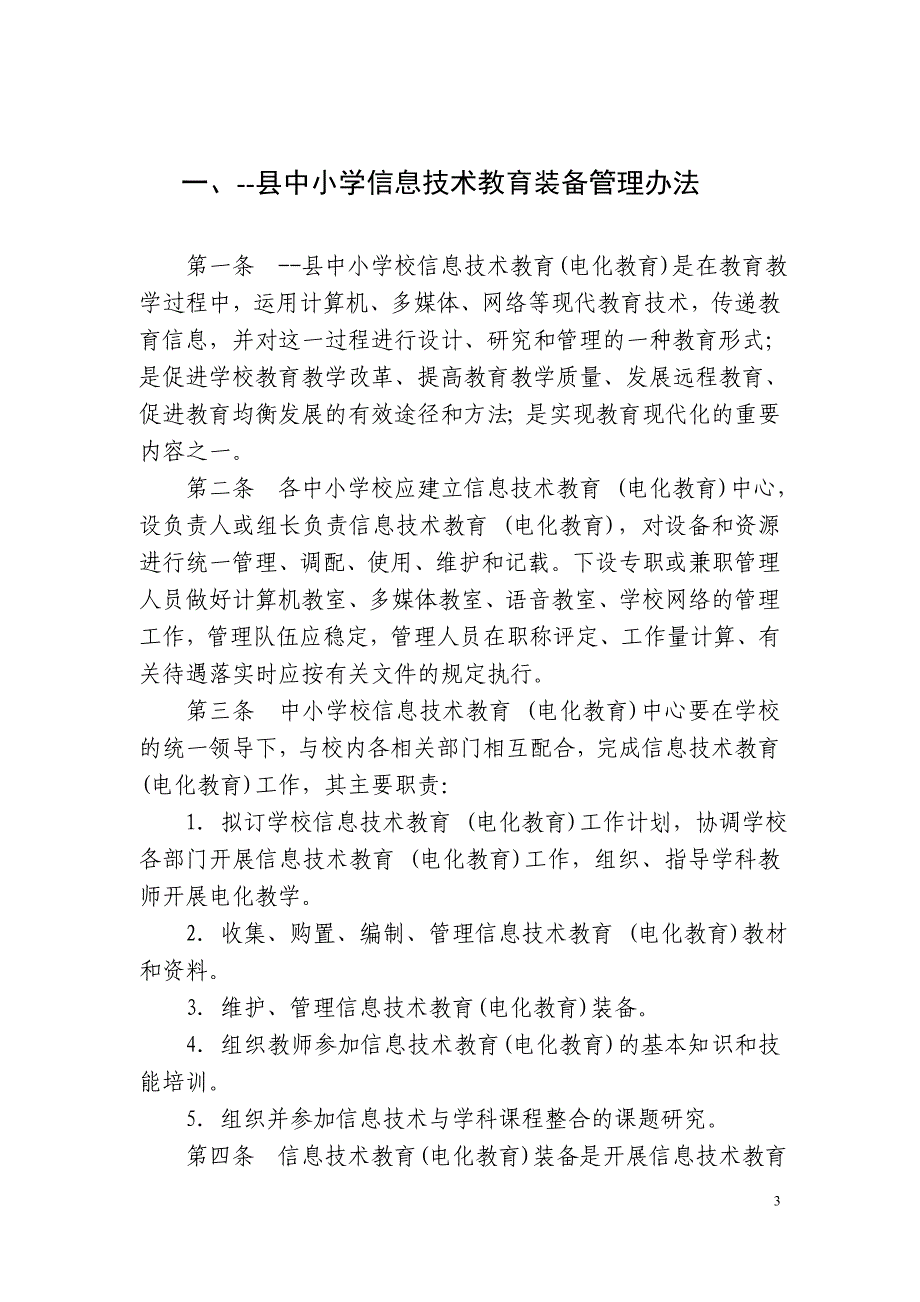 一、--县中小学信息技术教育装备管理办法
第一条　--县中小学校信息技术教育(电化教育)是在教育教
学过程中，运用计算机、多媒体、网络等现代教育技术，传递教
育信息，并对这一过程进行设计、研究和管理的一种教育形式；
是促进学校教育教学改革、提高教育教学质量、发展远程教育、
促进教育均衡发展的有效途径和方法；是实现教育现代化的重要
内容之一。
第二条　各中小学校应建立信息技术教育 (电化教育)中心，
设负责人或组长负责信息技术教育 (电化教育)，对设备和资源
进行统一管理、调配、使用、维护和记载。下设专职或兼职管理
人员做好计算机教室、多媒体教室、语音教室、学校网络的管理
工作，管理队伍应稳定，管理人员在职称评定、工作量计算、有
关待遇落实时应按有关文件的规定执行。
第三条　中小学校信息技术教育 (电化教育)中心要在学校
的统一领导下，与校内各相关部门相互配合，完成信息技术教育
(电化教育)工作，其主要职责：
1．拟订学校信息技术教育 (电化教育)工作计划，协调学校
各部门开展信息技术教育 (电化教育)工作，组织、指导学科教
师开展电化教学。
2．收集、购置、编制、管理信息技术教育 (电化教育)教材
和资料。
3．维护、管理信息技术教育(电化教育)装备。
4．组织教师参加信息技术教育(电化教育)的基本知识和技
能培训。
5．组织并参加信息技术与学科课程整合的课题研究。
第四条　信息技术教育(电化教育)装备是开展信息技术教育
3